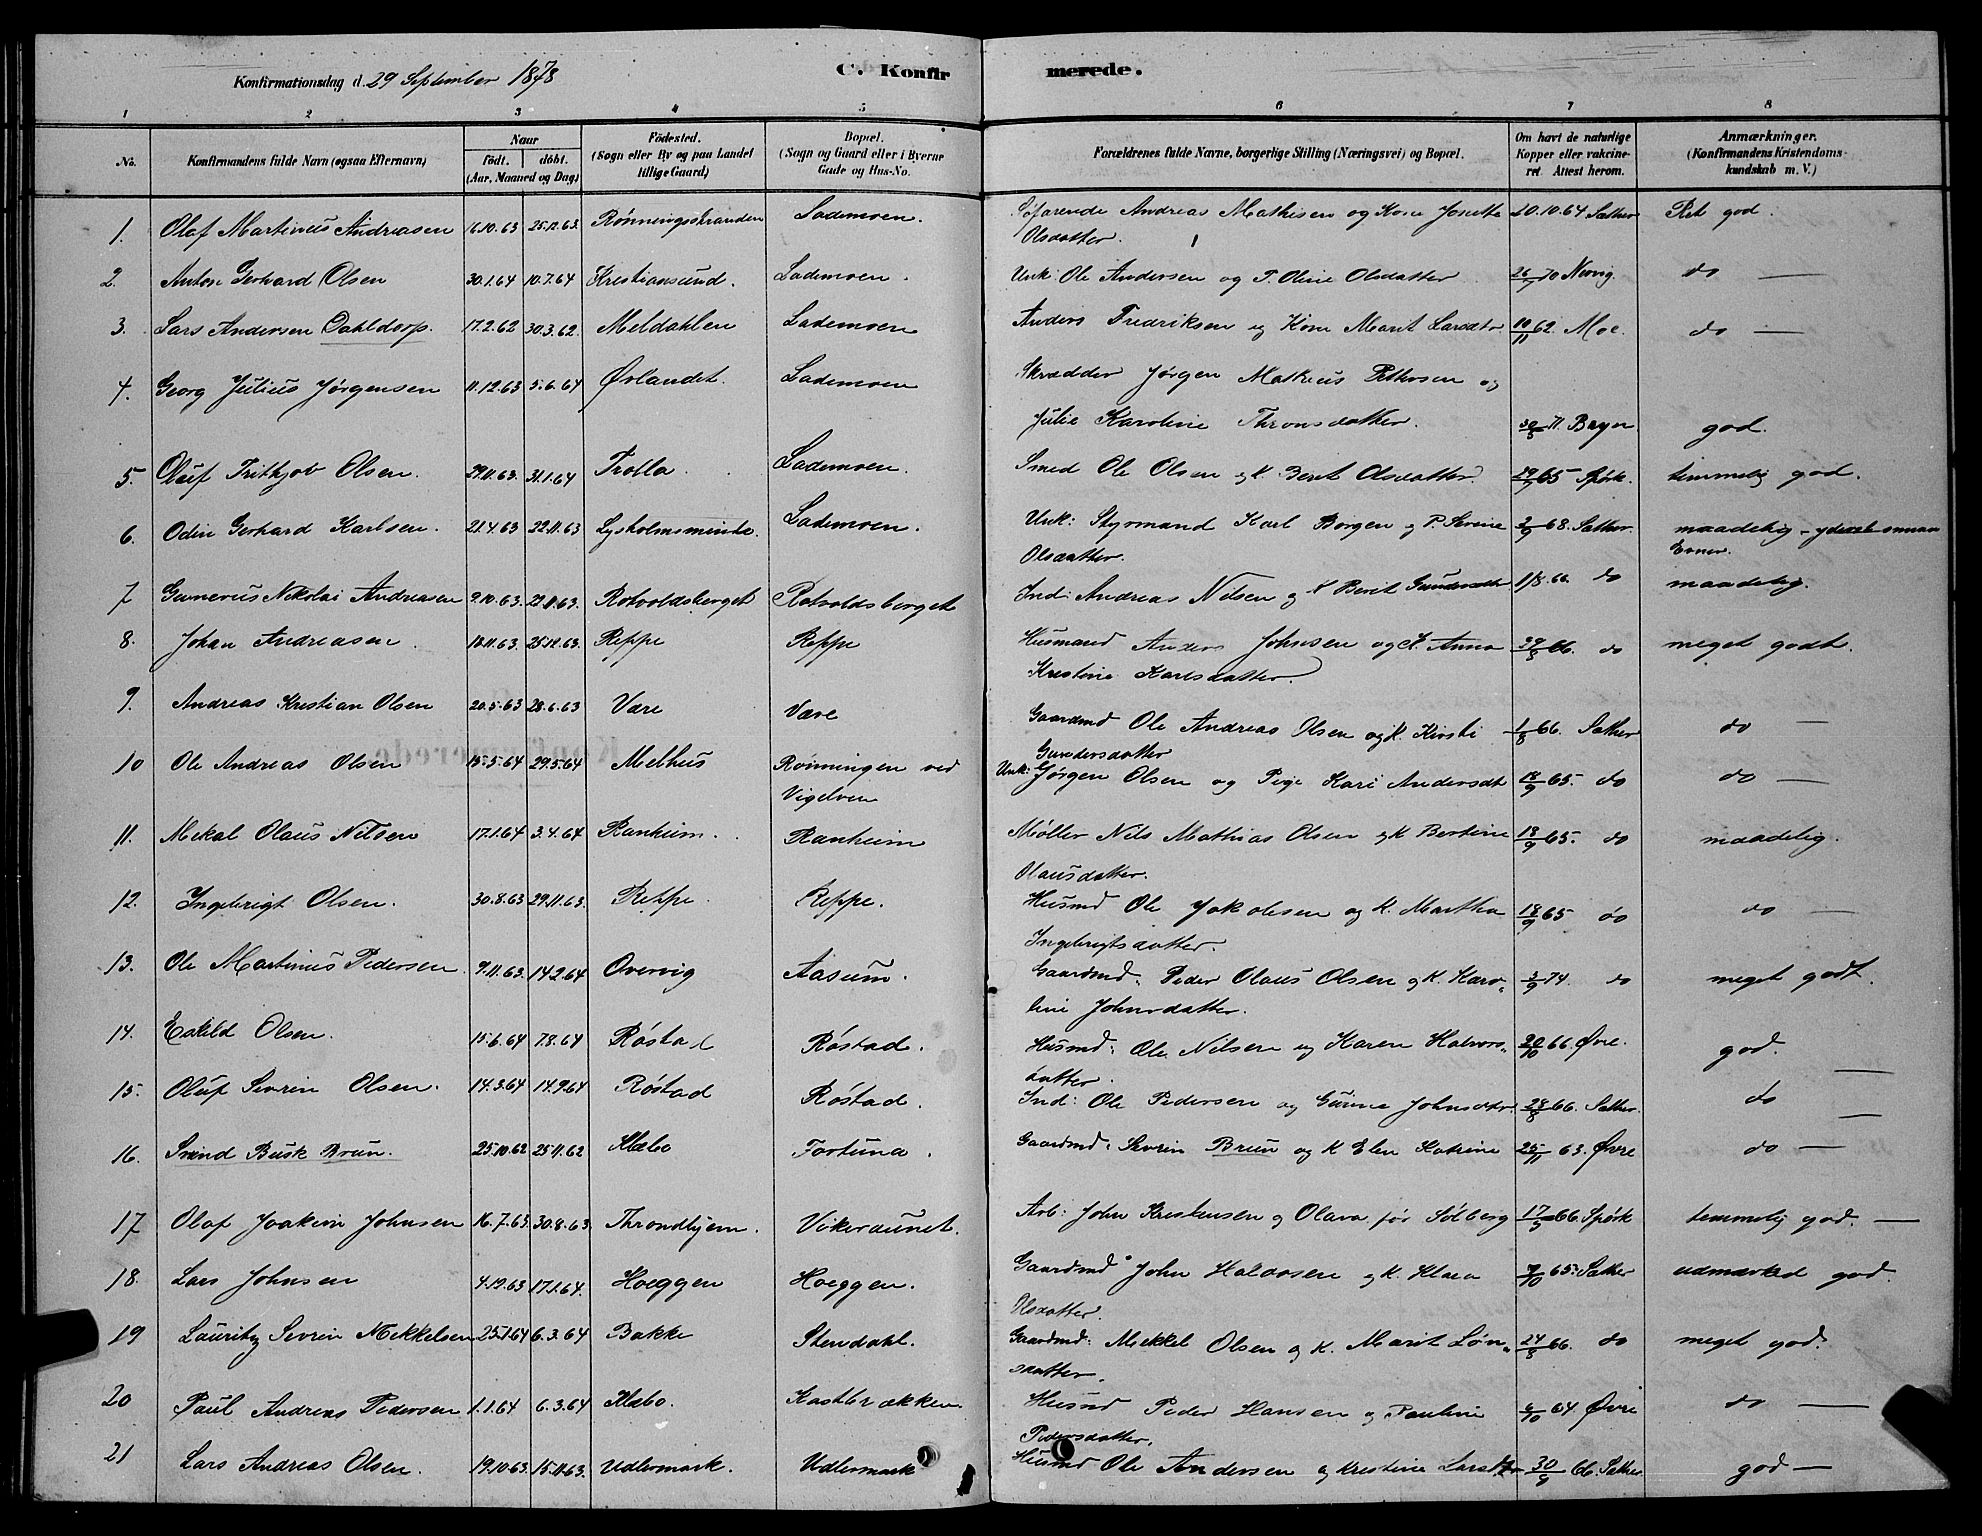 Konfirmationsdag d. 29 September 1878
C. Konfir merede.
1 2 3 4 5 6 7 8
No. Konfirmandens fulde Navn (ogsaa Efternavn) Naar födt. döbt. (Aar, Maaned og Dag) Födested. (Sogn eller By og paa Landet tillige Gaard) Bopæl. (Sogn og Gaard eller i Byerne Gade og Hus-No. Forældrenes fulde Navne, borgerlige Stilling (Næringsvei) og Bopæl. Om havt de naturlige Kopper eller vakcineret. Attest herom. Anmærkninger. (Konfirmandens Kristendomskundskab m. V.)
1. Olaf Martinus Andreasen 16.10.63 25.12.63 Rønningsstranden Lademoen. Søfarende Andreas Mathisen og Kone Josetta 20.10.64 Sather Ret god.
Olsdatter.
2. Anton Gerhard Olsen 30.1.64 10.7.64 Kristiansund. Lademoen. Unk: Ole Andersen og P. Oline Olsdatter 26/7 70 Nervig. do —
3. Lars Andersen Dahldorp. 17.2.62 30.3.62. Meldahlen Lademoen Anders Fredriksen og Kone Marit Larsdtr 10/11 62. Moe. do —
4. Georg Julius Jørgensen 11.12.63 5.6.64 Ørlandet. Lademoen Skrædder Jørgen Matheus Pettersen og
Julie Karoline Thronsdatter. 30/5 71. Beyer god.
5. Oluf Frithjob Olsen. 29.11.63. 31.1.64 Trolla. Lademoen. Smed Ole Olsen og K. Berit Olsdatter. 29/9 65 Spörk. temmelig god.
6. Odin Gerhard Karlsen. 21.4.63 22.11.63 Lysholmsminde. Lademoen. Unk: Styrmand Karl Borgen og P. Sevrine 2/9 68. Sather. maadelig – yderst smaa
Olsdatter. Evner.
7 Gunerus Nikolai Andreasen 9.10.63. 22.11.63. Rotvoldsberget Rotvoldsberget Ind: Andreas Nilsen og K Berit Gundersdtr 1/8. 66. do maadelig.
8. Johan Andreasen 18.11.63. 25.12.63. Reppe Reppe Husmand Anders Johnsen og K. Anna 29/8 66. do meget godt.
Kristine Karlsdatter.
9. Andreas Kristian Olsen 20.5.63 28.6.63 Være Være Gaardmd Ole Andreas Olsen og K. Kirsti 1/8 66. Sather do —
Gundersdatter
10 Ole Andreas Olsen 15.5.64 29.5.64 Melhus Rønningen ved Unk: Jørgen Olsen og Pige Kari Andersdt 18/9 65. do do —
Vigelven
11. Mekal Olaus Nilsen 17.1.64 3.4.64 Ranheim. Ranheim Møller Nils Mathias Olsen og K Bertine 18/9 65. do maadelig.
Olausdatter.
12. Ingebrigt Olsen. 30.8.63 29.11.63. Reppe. Reppe. Husmd Ole Jakobsen og K. Martha 18/9 65 do do —
Ingebrigtsdatter.
13. Ole Martinus Pedersen. 9.11.63. 14.2.64 Overvig Aasum. Gaardmd. Peder Olaus Olsen og K. Karo-
line Johnsdatter. 3/9 74. do meget godt.
14. Eskild Olsen. 15.6.64 7.8.64 Røstad Røstad. Husmd: Ole Nilsen og Karen Halvors- 20/10 66. Øvre. god. —
datter.
15. Oluf Sevrin Olsen. 14.3.64 14.9.64 Røstad Røstad. Ind: Ole Pedersen og Gurine Johnsdtr 28/8 66. Sather. do —
16. Svend Busk Brun. 25.10.62 25.11.62 Klæbo Fortuna. Gaardmd: Sevrin Brun og K Elen Katrine 25/11 63. Øvre do —
17 Olaf Joakim Johnsen 16.7.63. 30.8.63. Throndhjem. Vikeraunet. Arb: John Kristensen og Olava før Solberg 17/5 66. Spörk temmelig god. —
18. Lars Johnsen 4.12.63 17.1.64. Hoeggen Hoeggen. Gaardmd John Haldosen og K. Klara 9/10 65. Sather udmærked god.
Olsdatter.
19 Lauritz Sevrin Mekkelsen 25.1.64 6.3.64 Bakke Stendahl. Gaardmd: Mekkel Olsen og K. Marit Løn- 24/8 66. do meget god.
datter.
20 Paul Andreas Pedersen 1.1.64 6.3.64 Klæbo. Kastbrækken. Husmd Peder Hansen og Pauline 6/10 64 Øvre do —
Pedersdatter.
21 Lars Andreas Olsen. 19.10.63. 15.11.63. Udlermark. Udlermark Husmd Ole Andersen og Kristine Larsdtr 30/9 66. Sather. god —